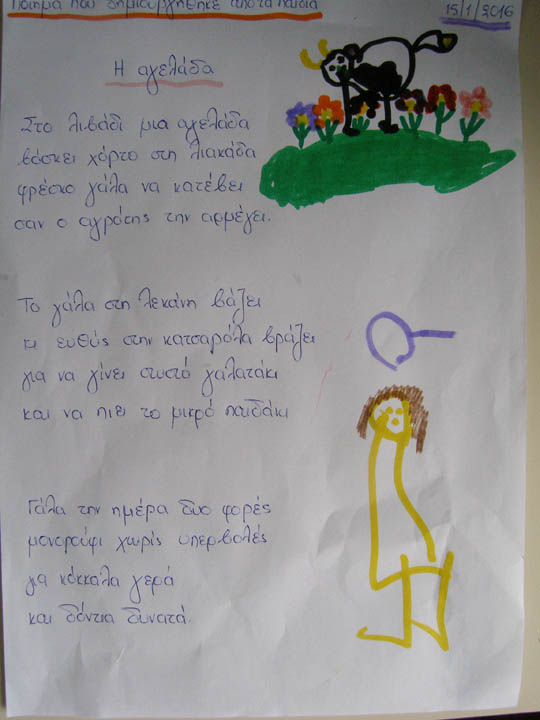 Ποίημα που δημιουργήθηκε από τα παιδιά
15/1/2016
Η αγελάδα
Στο λιβάδι μια αγελάδα
βόσκει χόρτο στη λιακάδα
φρέσκο γάλα να κατέβει
σαν ο αγρότης την αρμέγει.
Το γάλα στη λεκάνη βάζει
κι ευθύς στην κατσαρόλα βράζει
για να γίνει σωστό γαλατάκι
και να πιει το μικρό παιδάκι
Γάλα την ημέρα δυο φορές
μονορούφι χωρίς υπερβολές
για κόκκαλα γερά
και δόντια δυνατά.